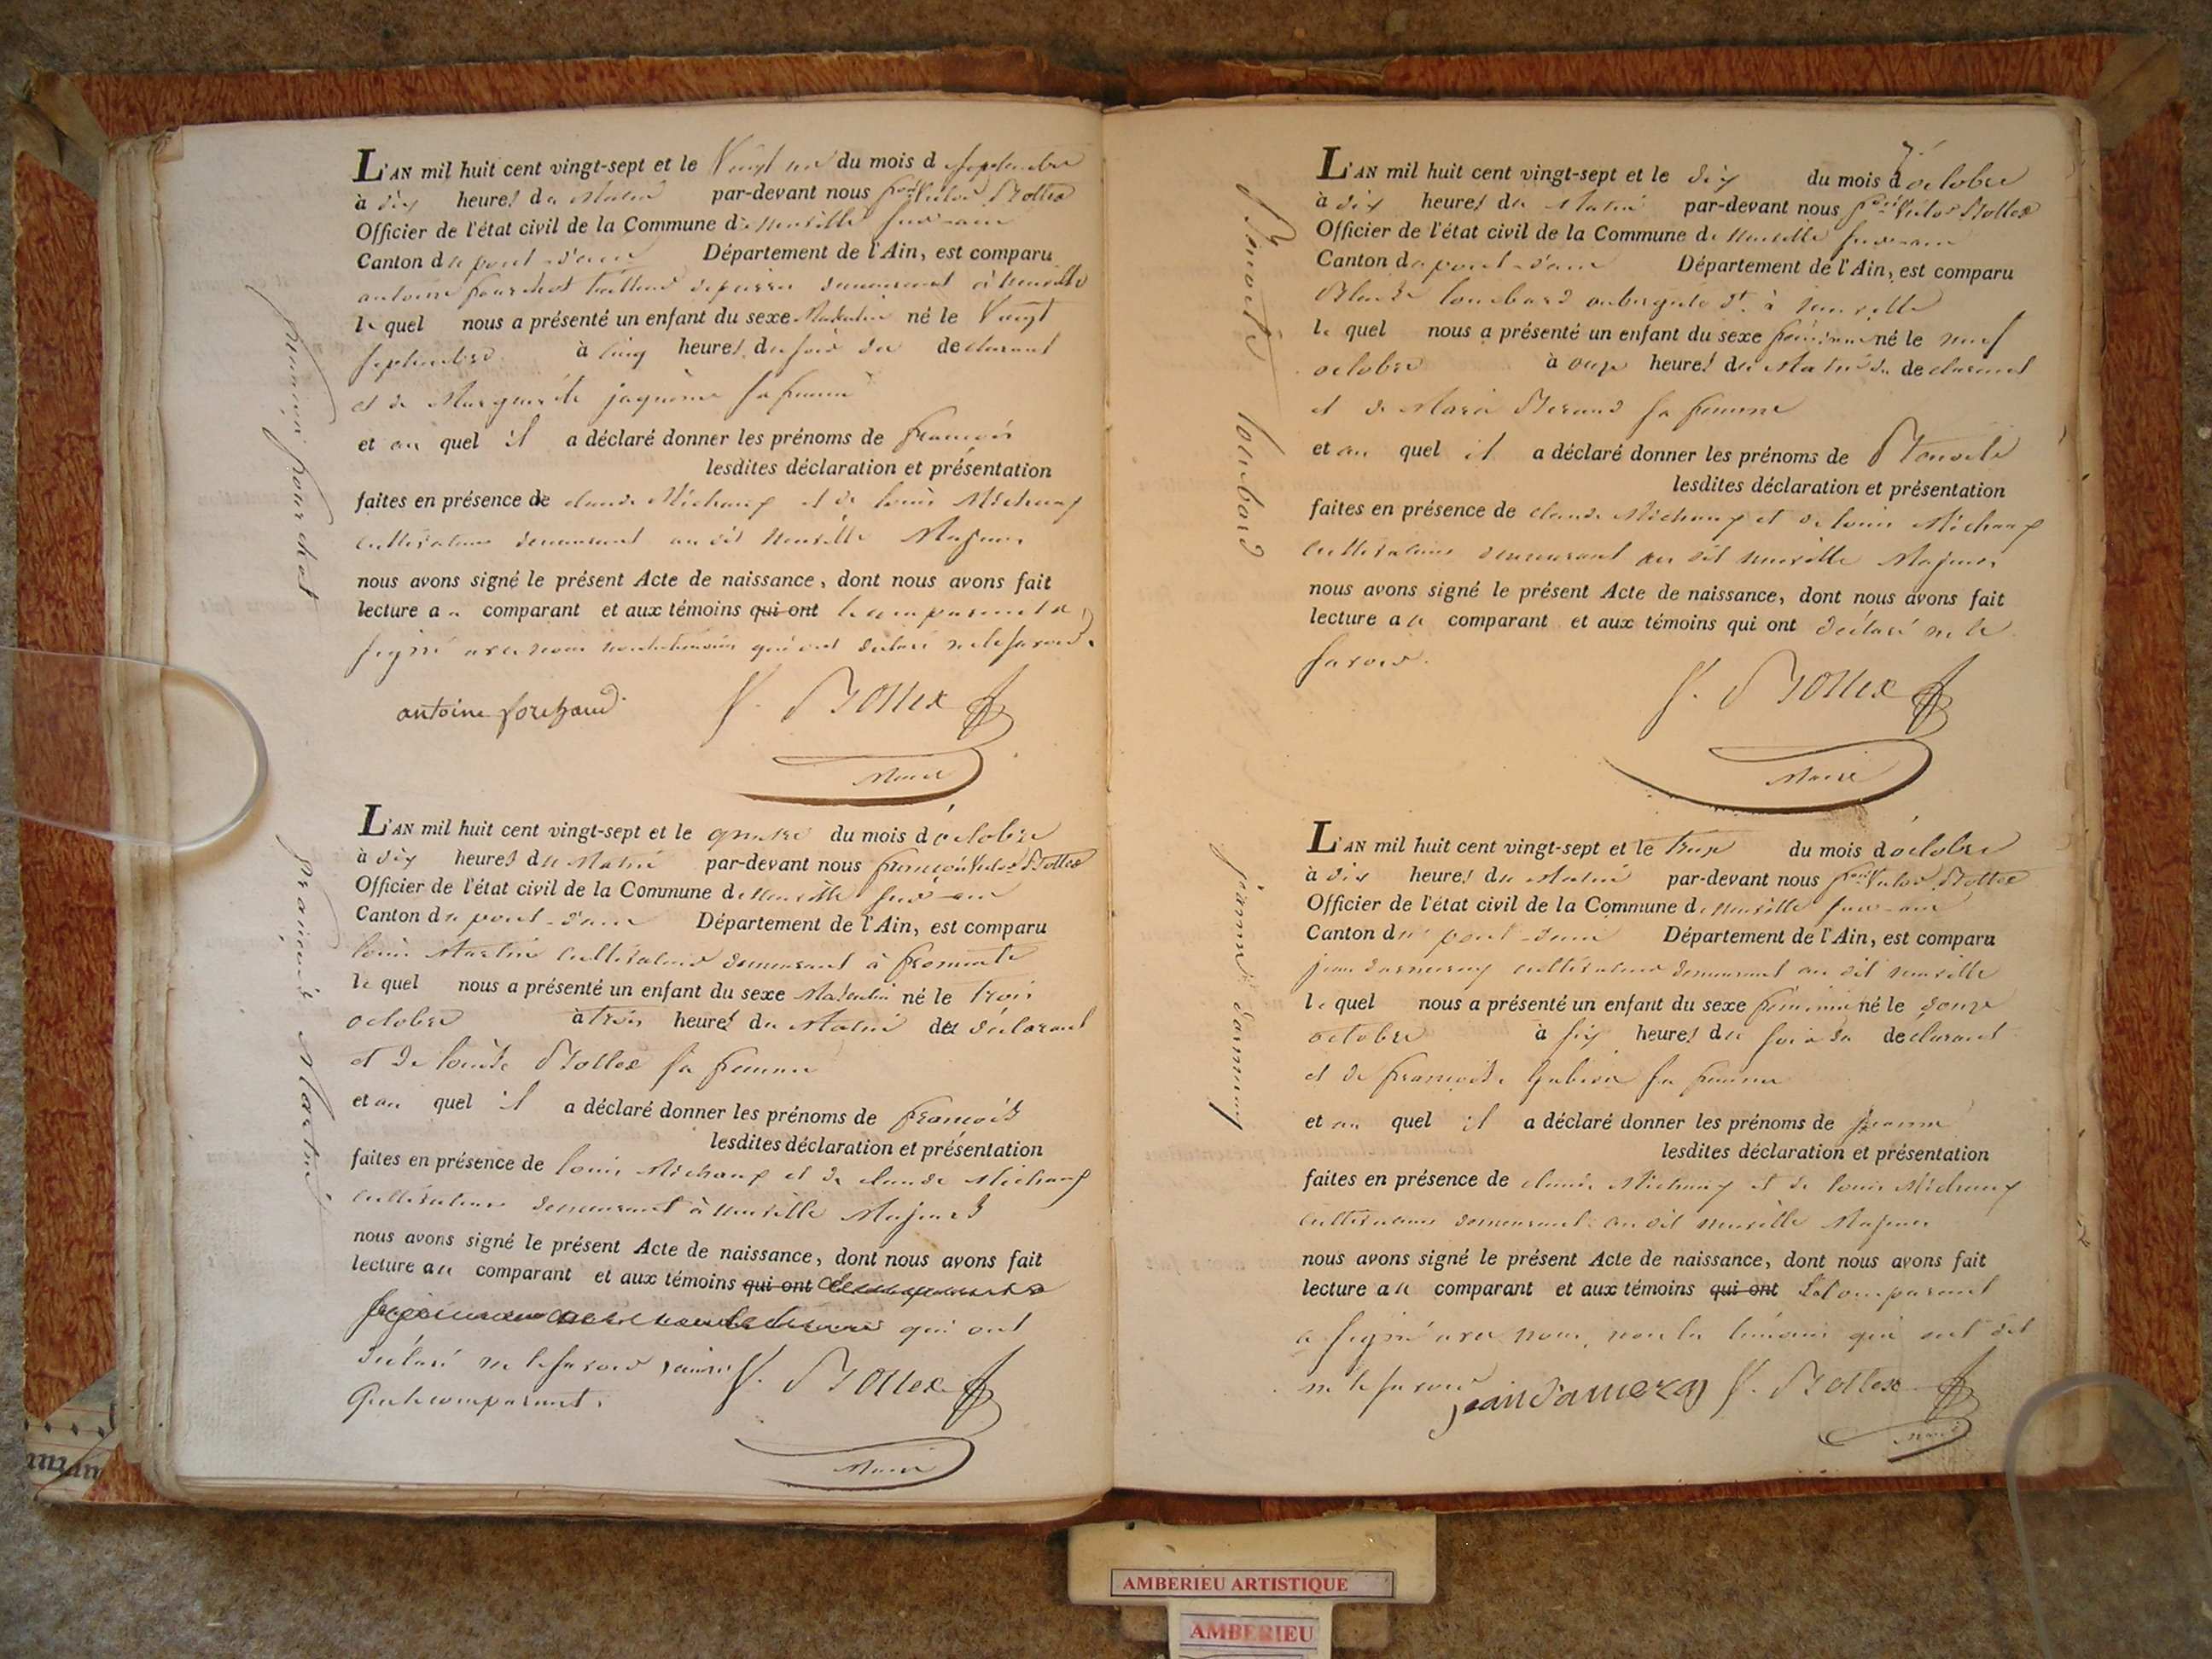 L'AN mil huit cent vingt-sept et le Vingt un du mois d septembre
à dix heures du Matin par-devant nous Victor Bottex
Officier de l'état civil de la Commune de neuville sur-ain
Canton du pont-d'ain Département de l'Ain, est comparu
antoine demeurant à neuville
le quel nous a présenté un enfant du sexe Masculin né le Vingt
septembre à cinq heures du soir du declarant
et de Marguerite jaquème sa femme
et au quel il a déclaré donner les prénoms de francois
lesdites déclaration et présentation
faites en présence de claude Michaux et de louis Michaux
cultivateurs demeurant au dit neuville Majeurs
nous avons signé le présent Acte de naissance, dont nous avons fait
lecture au comparant et aux témoins qui ont le comparant a
signé avec nous non les témoins qui ont déclaré ne le savoir.
antoine
V. Bottex
Maire
L'AN mil huit cent vingt-sept et le quatre du mois d'octobre
à dix heures du Matin par-devant nous françois Victor Bottex
Officier de l'état civil de la Commune de neuville sur-ain
Canton du pont-d'ain Département de l'Ain, est comparu
louis Martin cultivateur demeurant à fromente
le quel nous a présenté un enfant du sexe Masculin né le trois
octobre à trois heures du Matin du déclarant
et de louise Bottex sa femme
et au quel il a déclaré donner les prénoms de francois
lesdites déclaration et présentation
faites en présence de louis Michaux et de claude Michaux
cultivateurs demeurant à neuville Majeurs
nous avons signé le présent Acte de naissance, dont nous avons fait
lecture au comparant et aux témoins qui ont
qui ont
déclaré ne le savoir ainsi
que le comparant.
V. Bottex
Maire
françois Martin
L'AN mil huit cent vingt-sept et le dix du mois d'octobre
à dix heures du Matin par-devant nous Victor Bottex
Officier de l'état civil de la Commune de neuville sur-ain
Canton du pont-d'ain Département de l'Ain, est comparu
Blaise lombard aubergiste dt. à neuville
le quel nous a présenté un enfant du sexe féminin né le neuf
octobre à onze heures du Matin du declarant
et de Marie Berand sa femme
et au quel il a déclaré donner les prénoms de Benoite
lesdites déclaration et présentation
faites en présence de claude Michaux et de louis Michaux
cultivateurs demeurant au dit neuville Majeurs
nous avons signé le présent Acte de naissance, dont nous avons fait
lecture au comparant et aux témoins qui ont déclaré ne le
savoir.
V. Bottex
Maire
Benoite lombard
L'AN mil huit cent vingt-sept et le treize du mois d'octobre
à dix heures du Matin par-devant nous Victor Bottex
Officier de l'état civil de la Commune de neuville sur-ain
Canton du pont-d'ain Département de l'Ain, est comparu
jean cultivateur demeurant au dit neuville
le quel nous a présenté un enfant du sexe féminin né le douze
octobre à six heures du soir du declarant
et de francoise sa femme
et au quel il a déclaré donner les prénoms de jeanne
lesdites déclaration et présentation
faites en présence de claude Michaux et de louis Michaux
cultivateurs demeurant au dit neuville Majeurs
nous avons signé le présent Acte de naissance, dont nous avons fait
lecture au comparant et aux témoins qui ont le comparant
a signé avec nous, non les témoins qui ont dit
ne le savoir
jean
V. Bottex
Maire
jeanne
AMBERIEU ARTISTIQUE
AMBERIEU